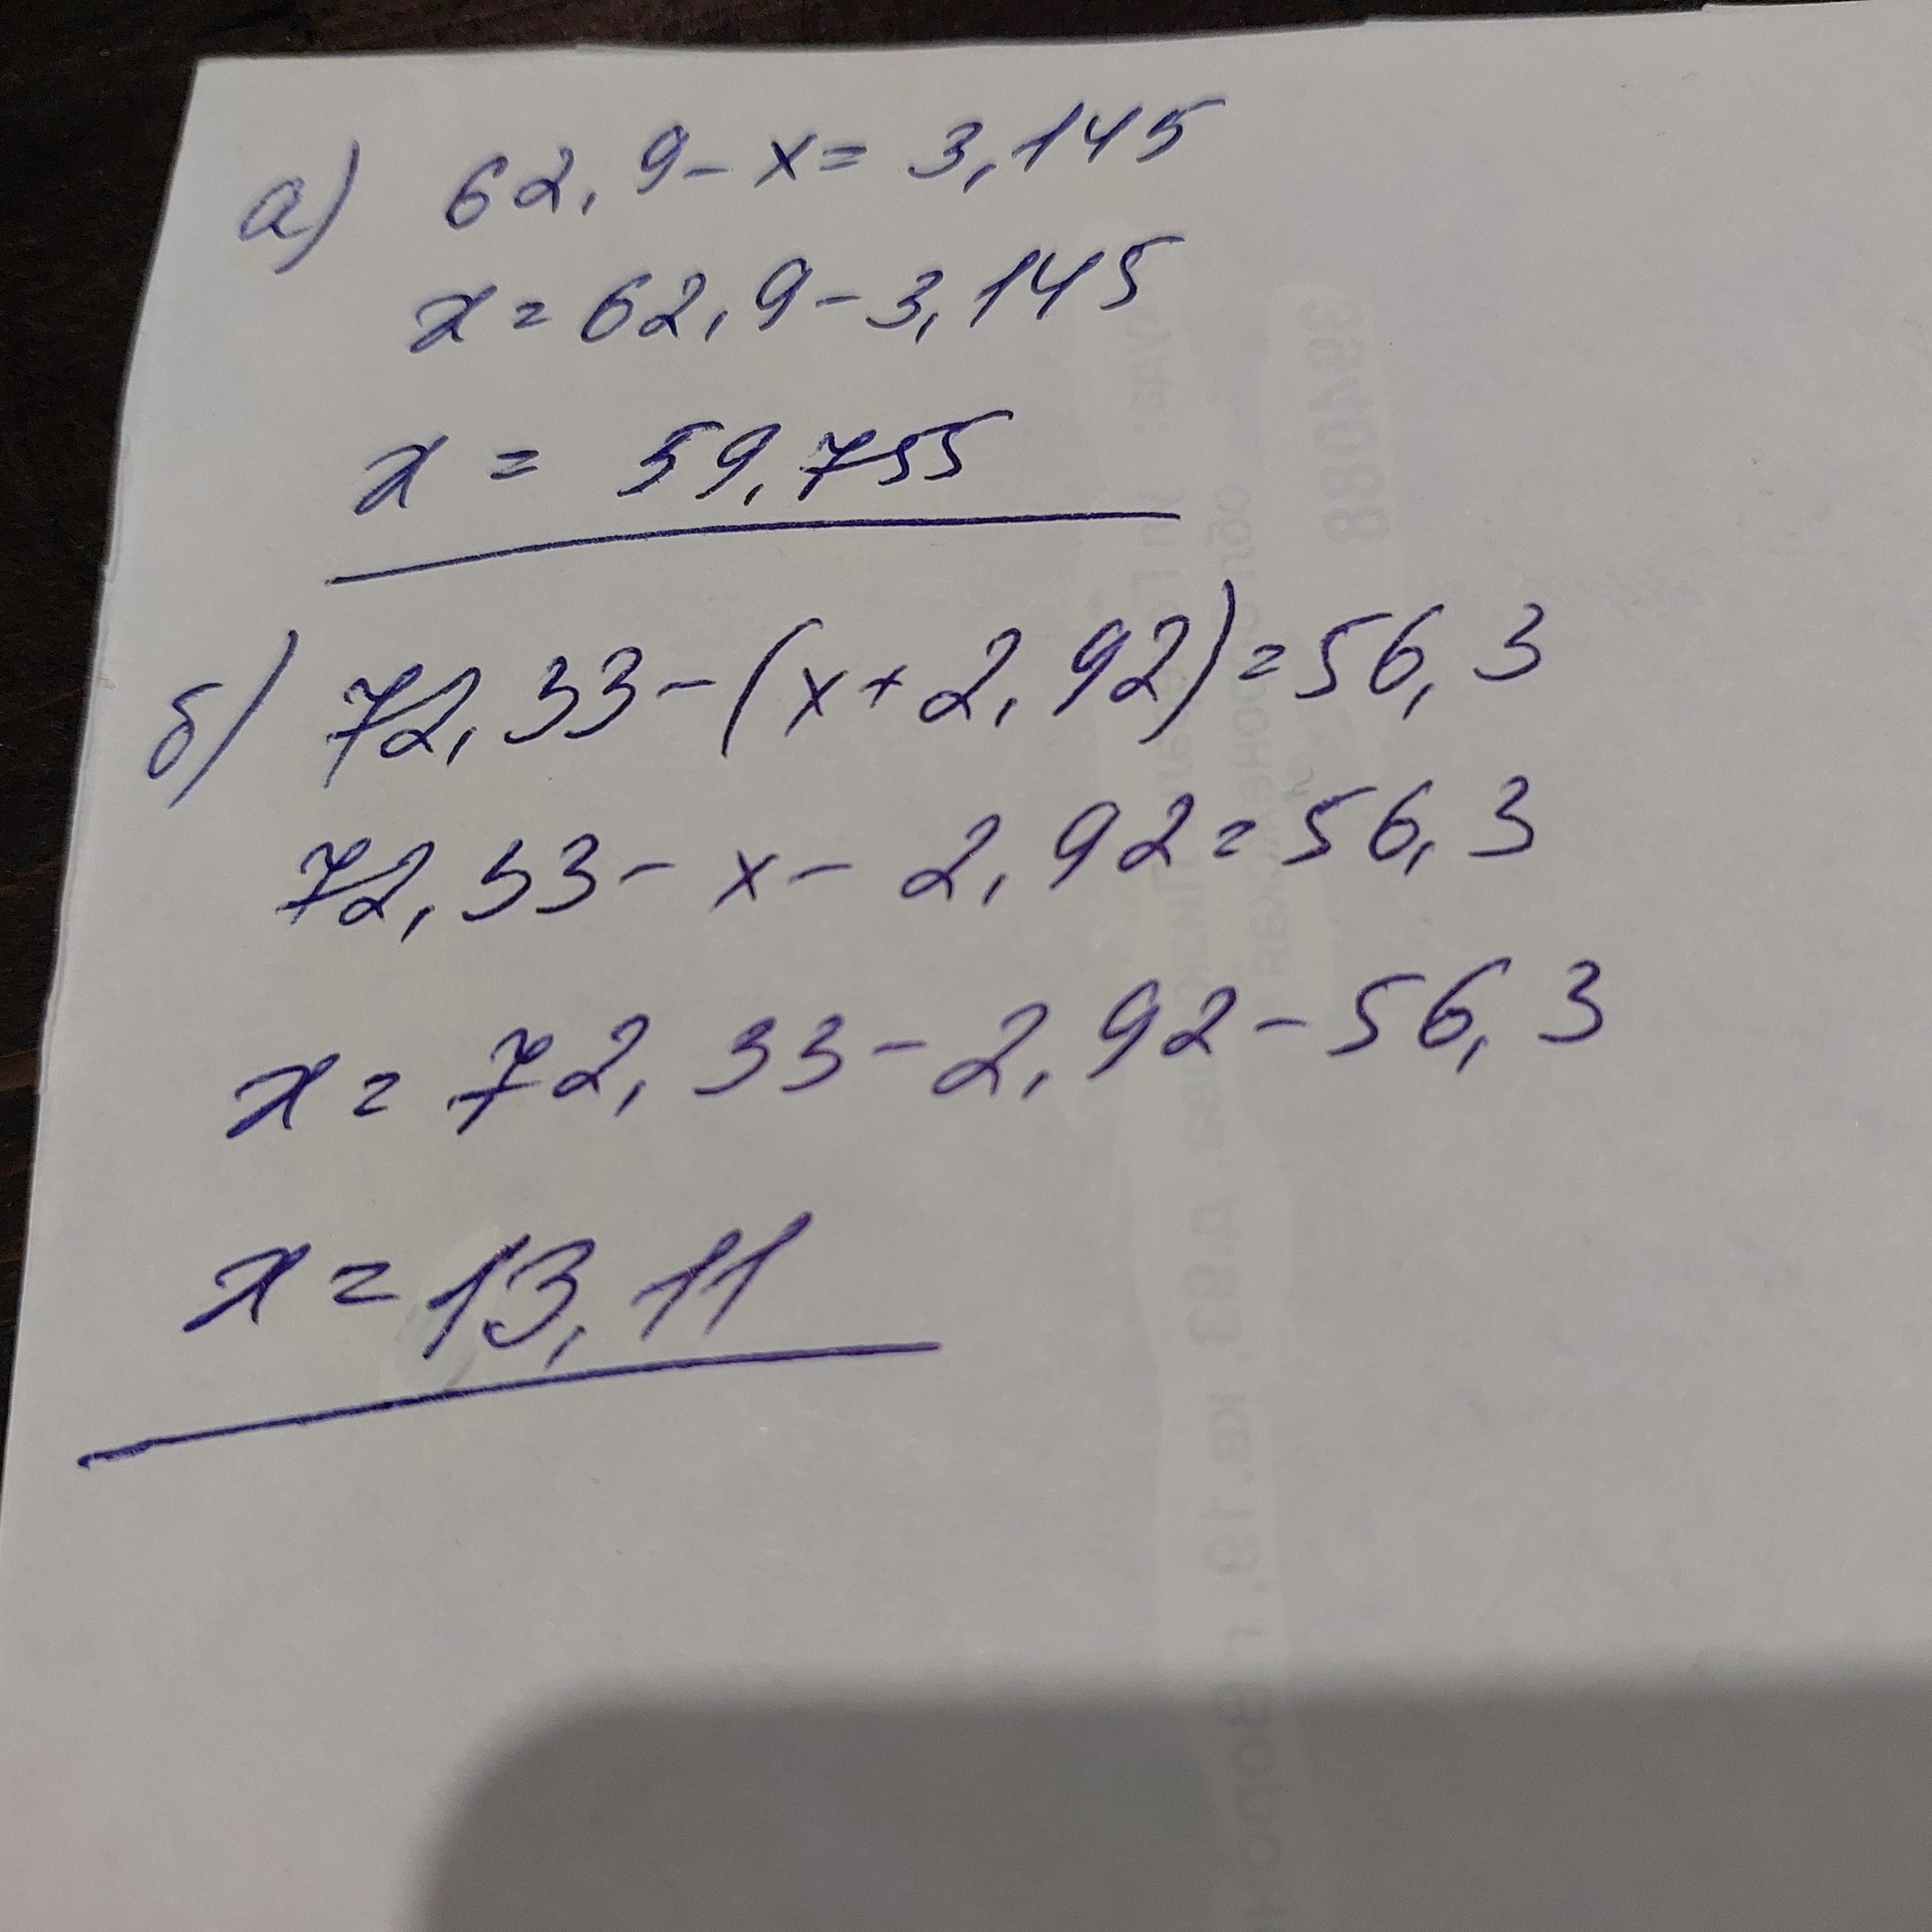 а) 62,9 - x = 3,145
x = 62,9 - 3,145
x = 59,755
б) 72,33 - (x + 2,92) = 56,3
72,33 - x - 2,92 = 56,3
x = 72,33 - 2,92 - 56,3
x = 13,11
394088